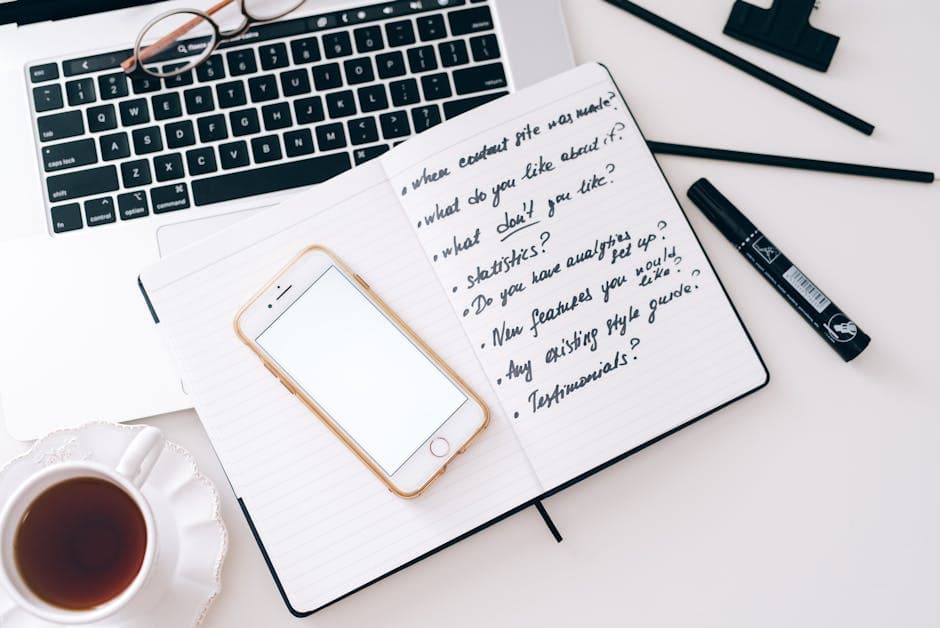 • when content site was made?
• what do you like about it?
• what don't you like?
• statistics?
• Do you have analytics
set up?
• New features you would
like?
• Any existing style guide?
• Testimonials?
esc
Q
W
E
R
T
Y
U
I
O
P
tab
A
S
D
F
G
H
J
K
L
caps lock
Z
X
C
V
B
N
M
shift
fn
control
option
command